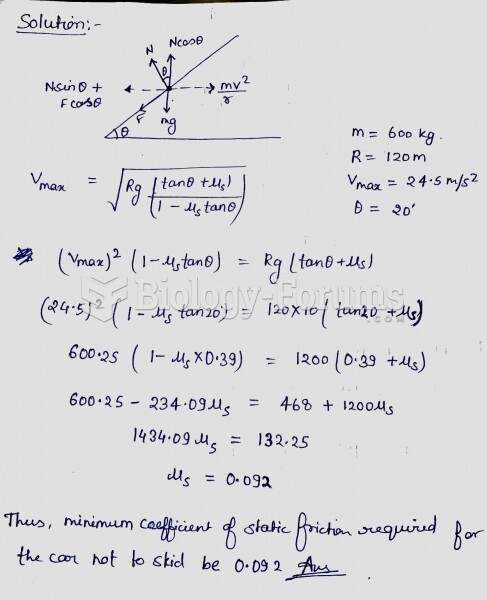 Solution:-
N
Ncosθ
θ
Nsinθ +
Fcosθ
mv²/r
F
mg
θ
m = 600 kg.
R = 120m
Vmax = 24.5 m/s2
θ = 20'
Vmax = √(Rg (tanθ + μs) / (1 - μs tanθ))
(Vmax)² (1 - μs tanθ) = Rg (tanθ + μs)
Biology-Forums
.COM
(24.5)² (1 - μs tan20) = 120×10 (tan20 + μs)
600.25 (1 - μs × 0.39) = 1200 (0.39 + μs)
600.25 - 234.09μs = 468 + 1200μs
1434.09 μs = 132.25
μs = 0.092
Thus, minimum coefficient of static friction required for
the car not to skid be 0.092 Ans